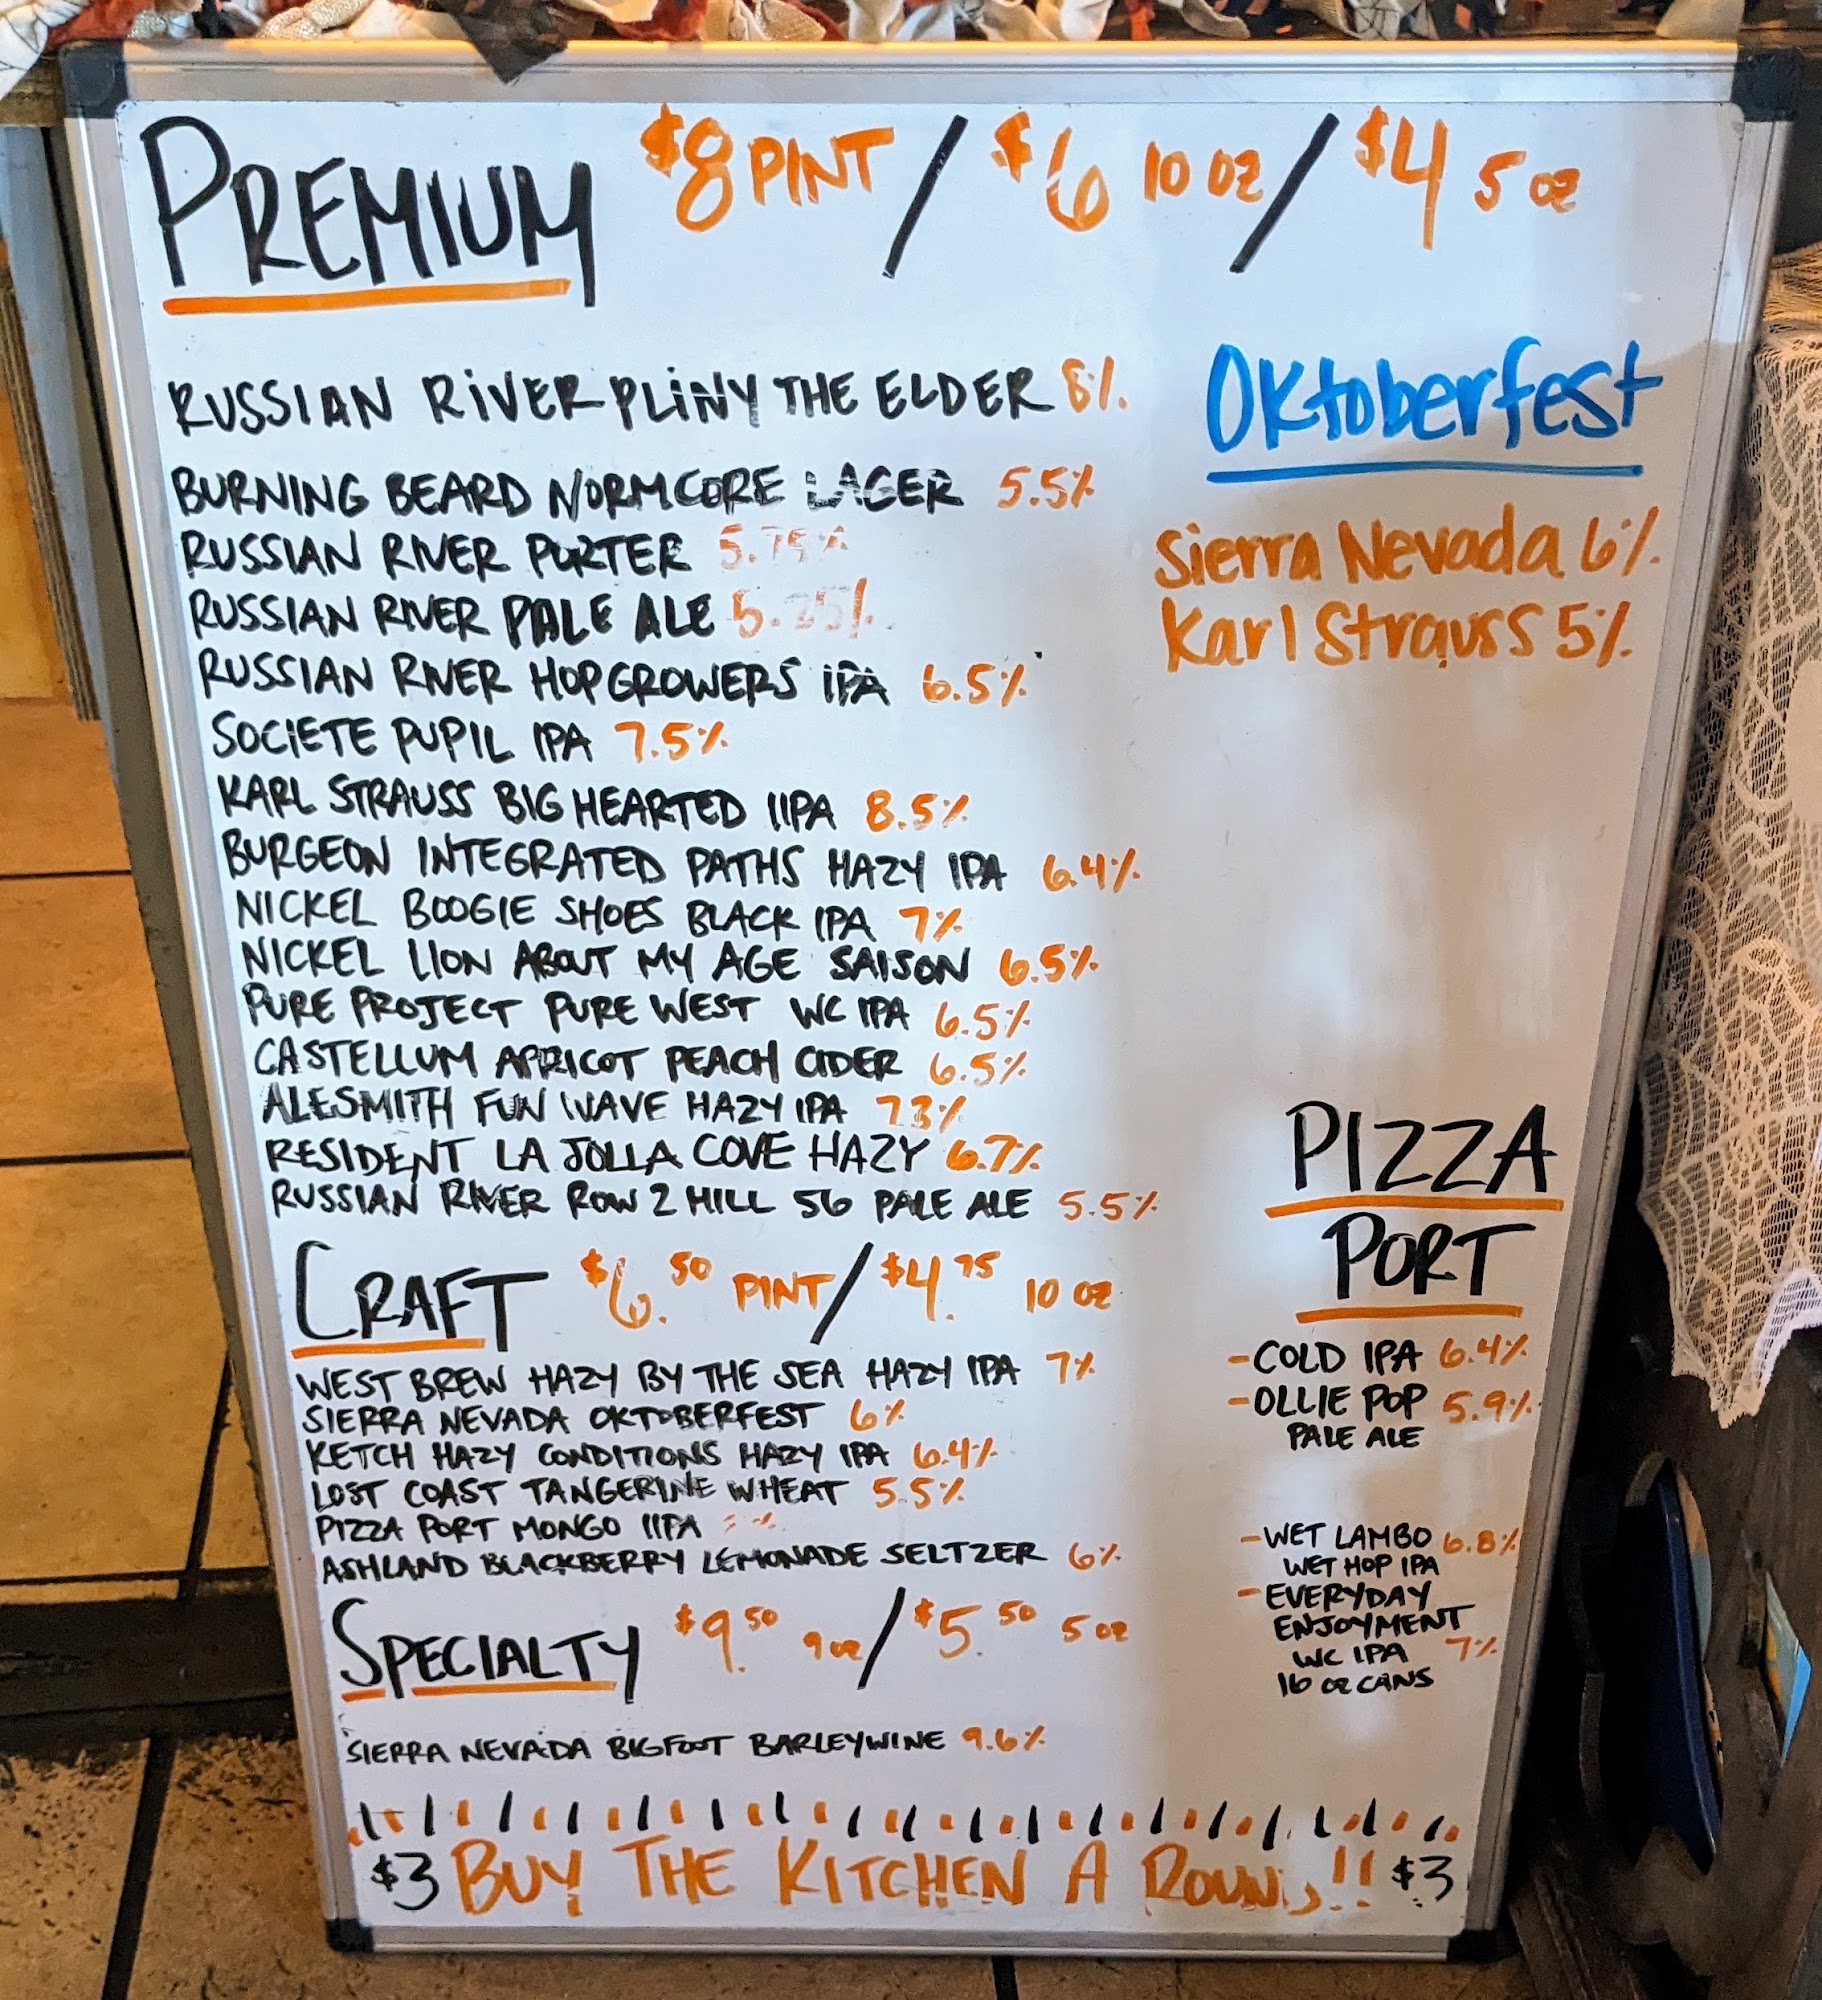 PREMIUM $8 PINT / $6 10 OZ / $4 5 OZ
RUSSIAN RIVER PLINY THE ELDER 8%
BURNING BEARD NORMCORE LAGER 5.5%
RUSSIAN RIVER PORTER 5.75%
RUSSIAN RIVER PALE ALE 5.25%
RUSSIAN RIVER HOPGROWERS IPA 6.5%
SOCIETE PUPIL IPA 7.5%
KARL STRAUSS BIG HEARTED IIPA 8.5%
BURGEON INTEGRATED PATHS HAZY IPA 6.4%
NICKEL BOOGIE SHOES BLACK IPA 7%
NICKEL LION ABOUT MY AGE SAISON 6.5%
PURE PROJECT PURE WEST WC IPA 6.5%
CASTELLUM APRICOT PEACH CIDER 6.5%
ALESMITH FUN WAVE HAZY IPA 7.3%
RESIDENT LA JOLLA COVE HAZY 6.7%
RUSSIAN RIVER ROW 2 HILL 56 PALE ALE 5.5%
Oktoberfest
Sierra Nevada 6%
Karl Strauss 5%
CRAFT $6.50 PINT / $4.75 10 OZ
WEST BREW HAZY BY THE SEA HAZY IPA 7%
SIERRA NEVADA OKTOBERFEST 6%
KETCH HAZY CONDITIONS HAZY IPA 6.4%
LOST COAST TANGERINE WHEAT 5.5%
PIZZA PORT MONGO IIPA
ASHLAND BLACKBERRY LEMONADE SELTZER 6%
SPECIALTY $9.50 9 OZ / $5.50 5 OZ
SIERRA NEVADA BIGFOOT BARLEYWINE 9.6%
PIZZA
PORT
- COLD IPA 6.4%
- OLLIE POP 5.9%
PALE ALE
- WET LAMBO 6.8%
WET HOP IPA
- EVERYDAY
ENJOYMENT
WC IPA 7%
16 OZ CANS
$3 BUY THE KITCHEN A ROUND!! $3